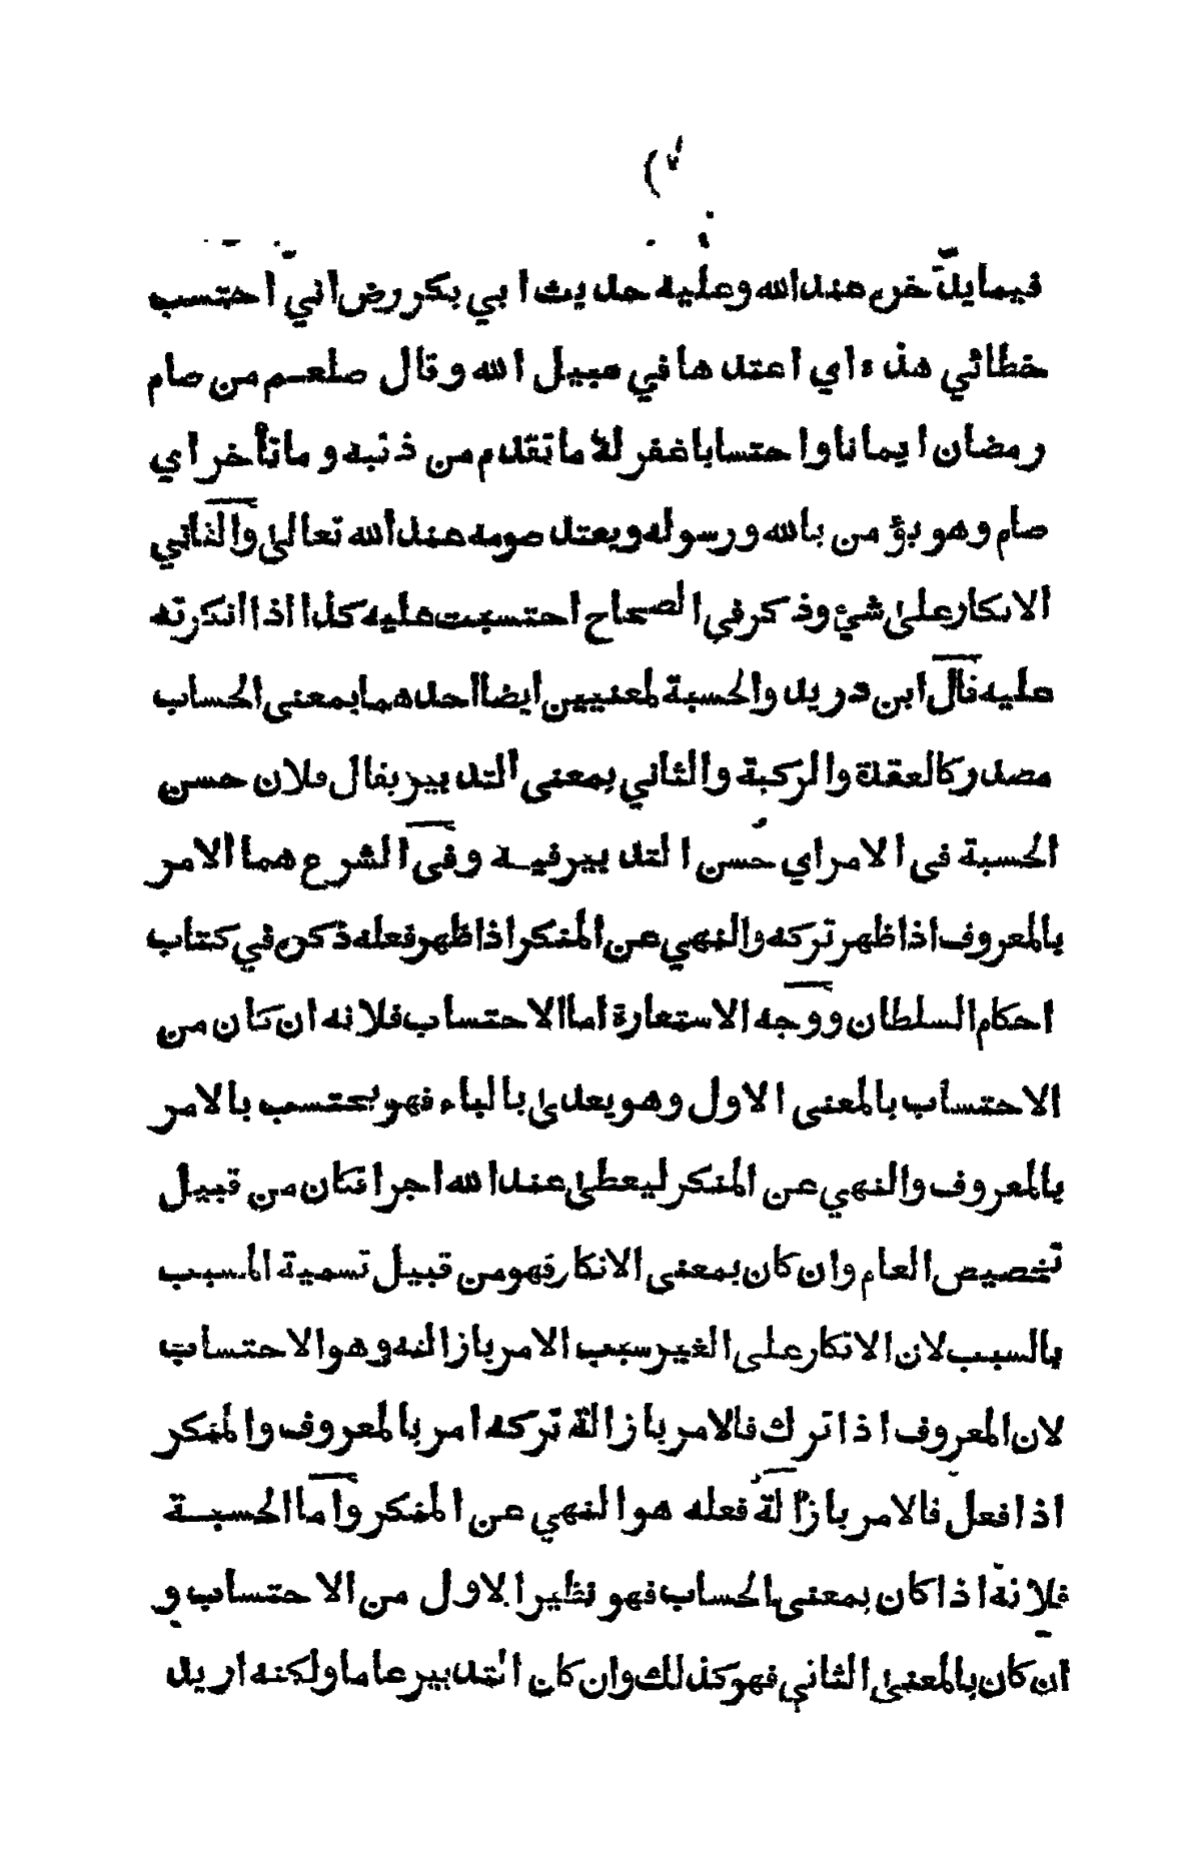 فيما يدّخر عند الله وعليه حديث ابي بكر رض انّي احتسب
خطائي هذه اي اعتدها في سبيل الله وقال صلعم من صام
رمضان ايمانا واحتسابا غفر له ما تقدم من ذنبه وما تأخر اي
صام وهو يؤمن بالله ورسوله ويعتد صومه عند الله تعالى والثاني
الانكار على شئ وذكر في الصحاح احتسبت عليه كذا اذا انكرته
عليه قال ابن دريد والحسبة لمعنيين ايضا احدهما بمعنى الحساب
مصدر كالعقدة والركبة والثاني بمعنى التدبير يقال فلان حسن
الحسبة فى الامر اي حُسن التدبير فيه وفى الشرع هما الامر
بالمعروف اذا ظهر تركه والنهي عن المنكر اذا ظهر فعله ذكره في كتاب
احكام السلطان ووجه الاستعارة اما الاحتساب فلانه ان كان من
الاحتساب بالمعنى الاول وهو يعدى بالباء فهو يحتسب بالامر
بالمعروف والنهي عن المنكر ليعطى عند الله اجرا فكان من قبيل
تخصيص العام وان كان بمعنى الانكار فهو من قبيل تسمية المسبب
بالسبب لان الانكار على الغير سبب الامر بازالته وهو الاحتساب
لان المعروف اذا ترك فالامر بازالة تركه امر بالمعروف والمنكر
اذا فعل فالامر بازالة فعله هو النهي عن المنكر واما الحسبة
فلانه اذا كان بمعنى الحساب فهو نظير الاول من الاحتساب و
ان كان بالمعنى الثاني فهو كذلك وان كان التدبير عاما ولكنه اريد